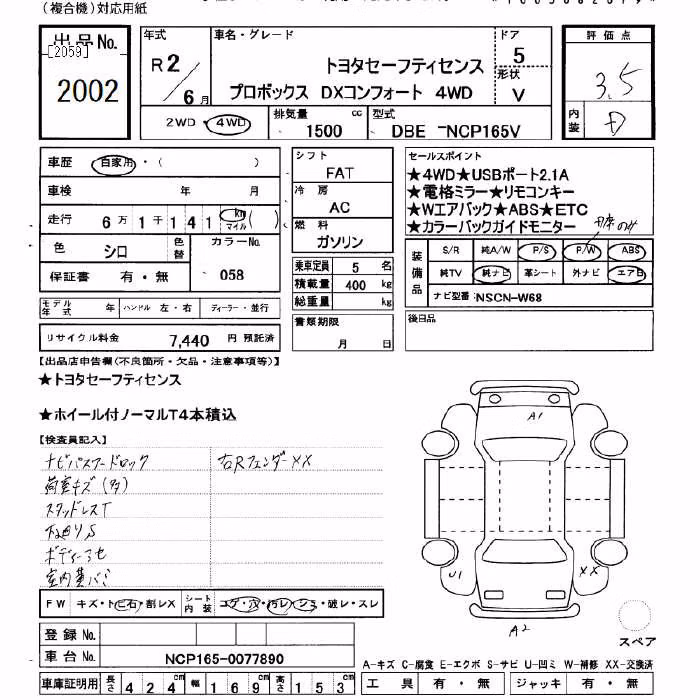 (複合機)対応用紙
出品No.
[2059]
2002
年式
R2/6月
車名・グレード
トヨタセーフティセンス
プロボックス DXコンフォート 4WD
ドア
5
形状
V
評価点
3.5
内装
D
2WD・4WD
排気量
1500 cc
型式
DBE -NCP165V
車歴
自家用・( )
車検 年 月
走行 6万1千141 km マイル ( )
色 シロ 色替
カラーNo.
058
保証書 有・無
シフト
FAT
冷房
AC
燃料
ガソリン
乗車定員 5 名
積載量 400 kg
総重量 kg
書類期限
月 日
セールスポイント
★4WD★USBポート2.1A
★電格ミラー★リモコンキー
★Wエアバック★ABS★ETC
★カラーバックガイドモニター
装備品
S/R 純A/W P/S P/W ABS
純TV 純ナビ 革シート 外ナビ エアB
ナビ型番:NSCN-W68
後日品
モデル年式 年 ハンドル 左・右 ディーラー・並行
リサイクル料金 7,440 円 預託済
【出品店申告欄(不良箇所・欠品・注意事項等)】
★トヨタセーフティセンス
★ホイール付ノーマルT4本積込
【検査員記入】
ナビパスワードロック
右Rフェンダー××
荷室キズ(多)
スタッドレスT
下廻りS
ボディー
FW キズ・トビ石・割レX シート内装 コゲ・穴・汚レ・シミ・破レ・スレ
登録No.
車台No. NCP165-0077890
車庫証明用 長さ 424cm 幅 169cm 高さ 153cm
A1
U1
XX
A2
スペア
A-キズ C-腐食 E-エクボ S-サビ U-凹ミ W-補修 XX-交換済
工具 有・無 ジャッキ 有・無